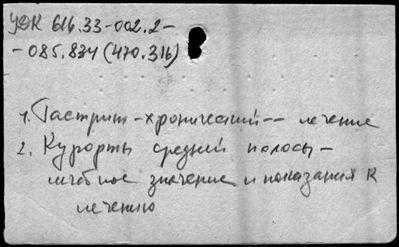 УДК 616.33-002.2-
-085.834(470.316)
1. Гастрит-хронический-- лечение
2. Курорты средней полосы-
лечебное значение и показания к
лечению